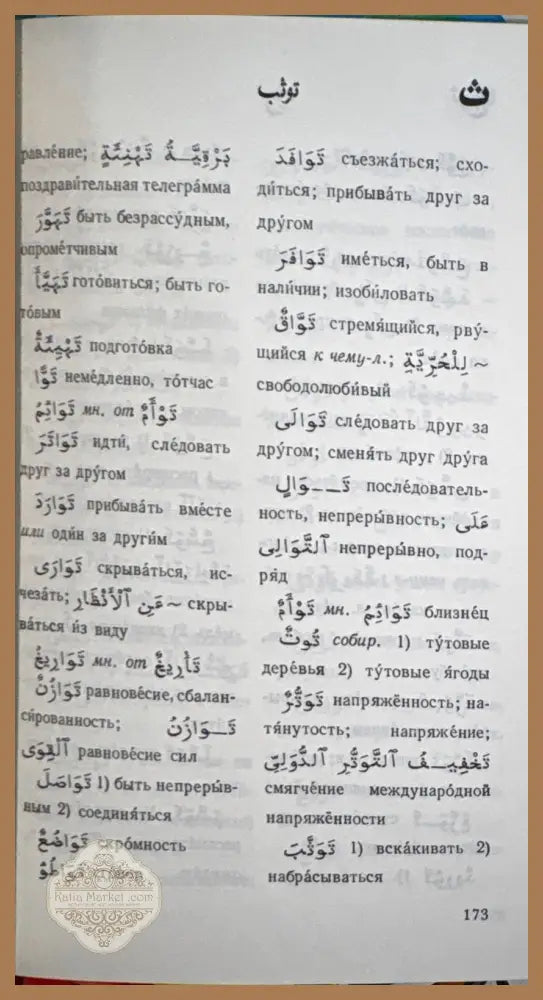 توثب
ث
равле́ние; بَرْقِيَّةُ تَهْنِئَةٍ
поздрави́тельная телегра́мма
تَهَوَّرَ быть безрассу́дным,
опроме́тчивым
تَهَيَّأَ гото́виться; быть го-
то́вым
تَهْيِئَةٌ подгото́вка
تَوًّا неме́дленно, то́тчас
تَوَائِمُ мн. от تَوْأَمٌ
تَوَاتَرَ идти́, сле́довать
друг за дру́гом
تَوَارَدَ прибыва́ть вме́сте
или оди́н за други́м
تَوَارَى скрыва́ться, ис-
чеза́ть; عَنِ الْأَنْظَارِ ~ скры-
ва́ться и́з виду
تَوَارِيخُ мн. от تَأْرِيخٌ
تَوَازُنٌ равнове́сие, сбалан-
си́рованность; تَوَازُنُ
الْقِوَى равнове́сие сил
تَوَاصَلَ 1) быть непреры́в-
ным 2) соединя́ться
تَوَاضُعٌ скро́мность
Katia Market .com
تَوَافَدَ съезжа́ться; схо-
ди́ться; прибыва́ть друг за
дру́гом
تَوَافَرَ име́ться, быть в
нали́чии; изоби́ловать
تَوَّاقٌ стремя́щийся, рву́-
щийся к чему-л.; لِلْحُرِّيَّةِ ~
свободолюби́вый
تَوَالَى сле́довать друг за
дру́гом; сменя́ть друг дру́га
تَوَالٍ после́дователь-
ность, непреры́вность; عَلَى
التَّوَالِي непреры́вно, под-
ря́д
تَوْأَمٌ мн. تَوَائِمُ близне́ц
تُوتٌ собир. 1) ту́товые
дере́вья 2) ту́товые я́годы
تَوَتُّرٌ напряжённость; на-
тя́нутость; напряже́ние;
تَخْفِيفُ التَّوَتُّرِ الدُّوَلِيِّ
смягче́ние междунаро́дной
напряжённости
تَوَثَّبَ 1) вска́кивать 2)
набра́сываться
173